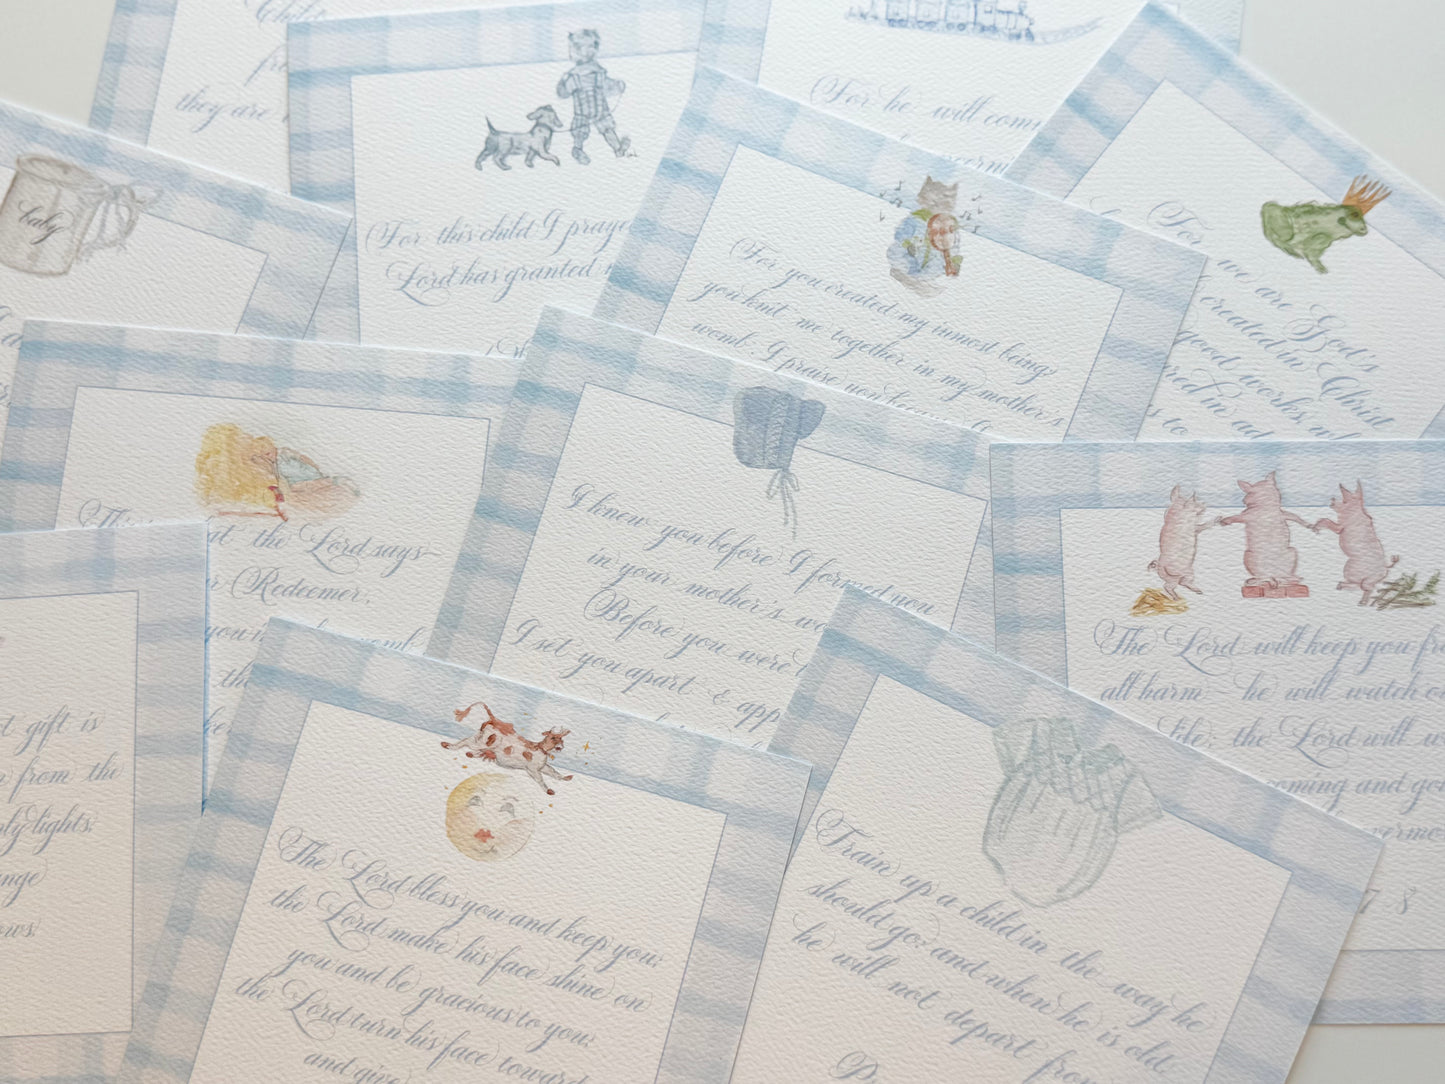 they are
For this child I praye
Lord has granted
For he will com
baby
For you created my inmost being;
you knit me together in my mother's
womb. I praise you
For
we are God's
created in Christ
good works, wh
red in ad
s to
at the Lord says—
r Redeemer,
you in
I knew you before I formed you
in your mother's wo
Before you were
I set you apart & app
The Lord will keep you fr
all harm — he will watch o
life; the Lord will w
coming and go
vermo
7-8
t gift is
n from the
nly lights,
ange
ows.
The Lord bless you and keep you;
the Lord make his face shine on
you and be gracious to you;
the Lord turn his face toward
and give
Train up a child in the way he
should go; and when he is old
he will not depart from
P